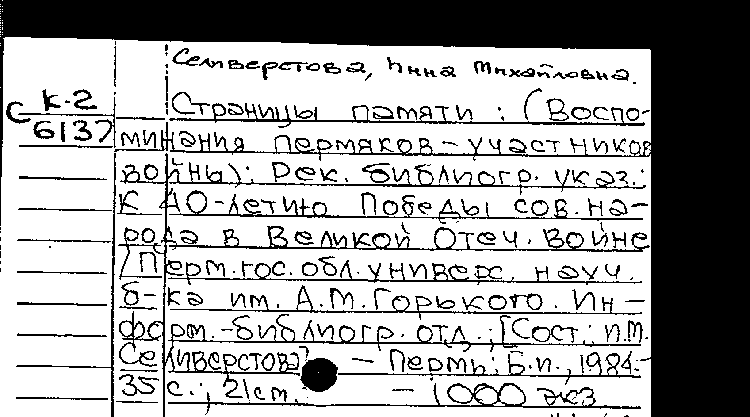 Селиверстова, Инна Михайловна.
К-2
С 6137
Страницы памяти : (Воспо-
минания пермяков - участников
войны): Рек. библиогр. указ.:
К 40-летию Победы сов. на-
рода в Великой Отеч. войне
/ Перм. гос. обл. универс. науч.
б-ка им. А.М. Горького. Ин-
форм.-библиогр. отд.; [Сост. И.М.
Селиверстова] - Пермь: Б.и., 1984.-
35 с.; 21 см. - 1000 экз